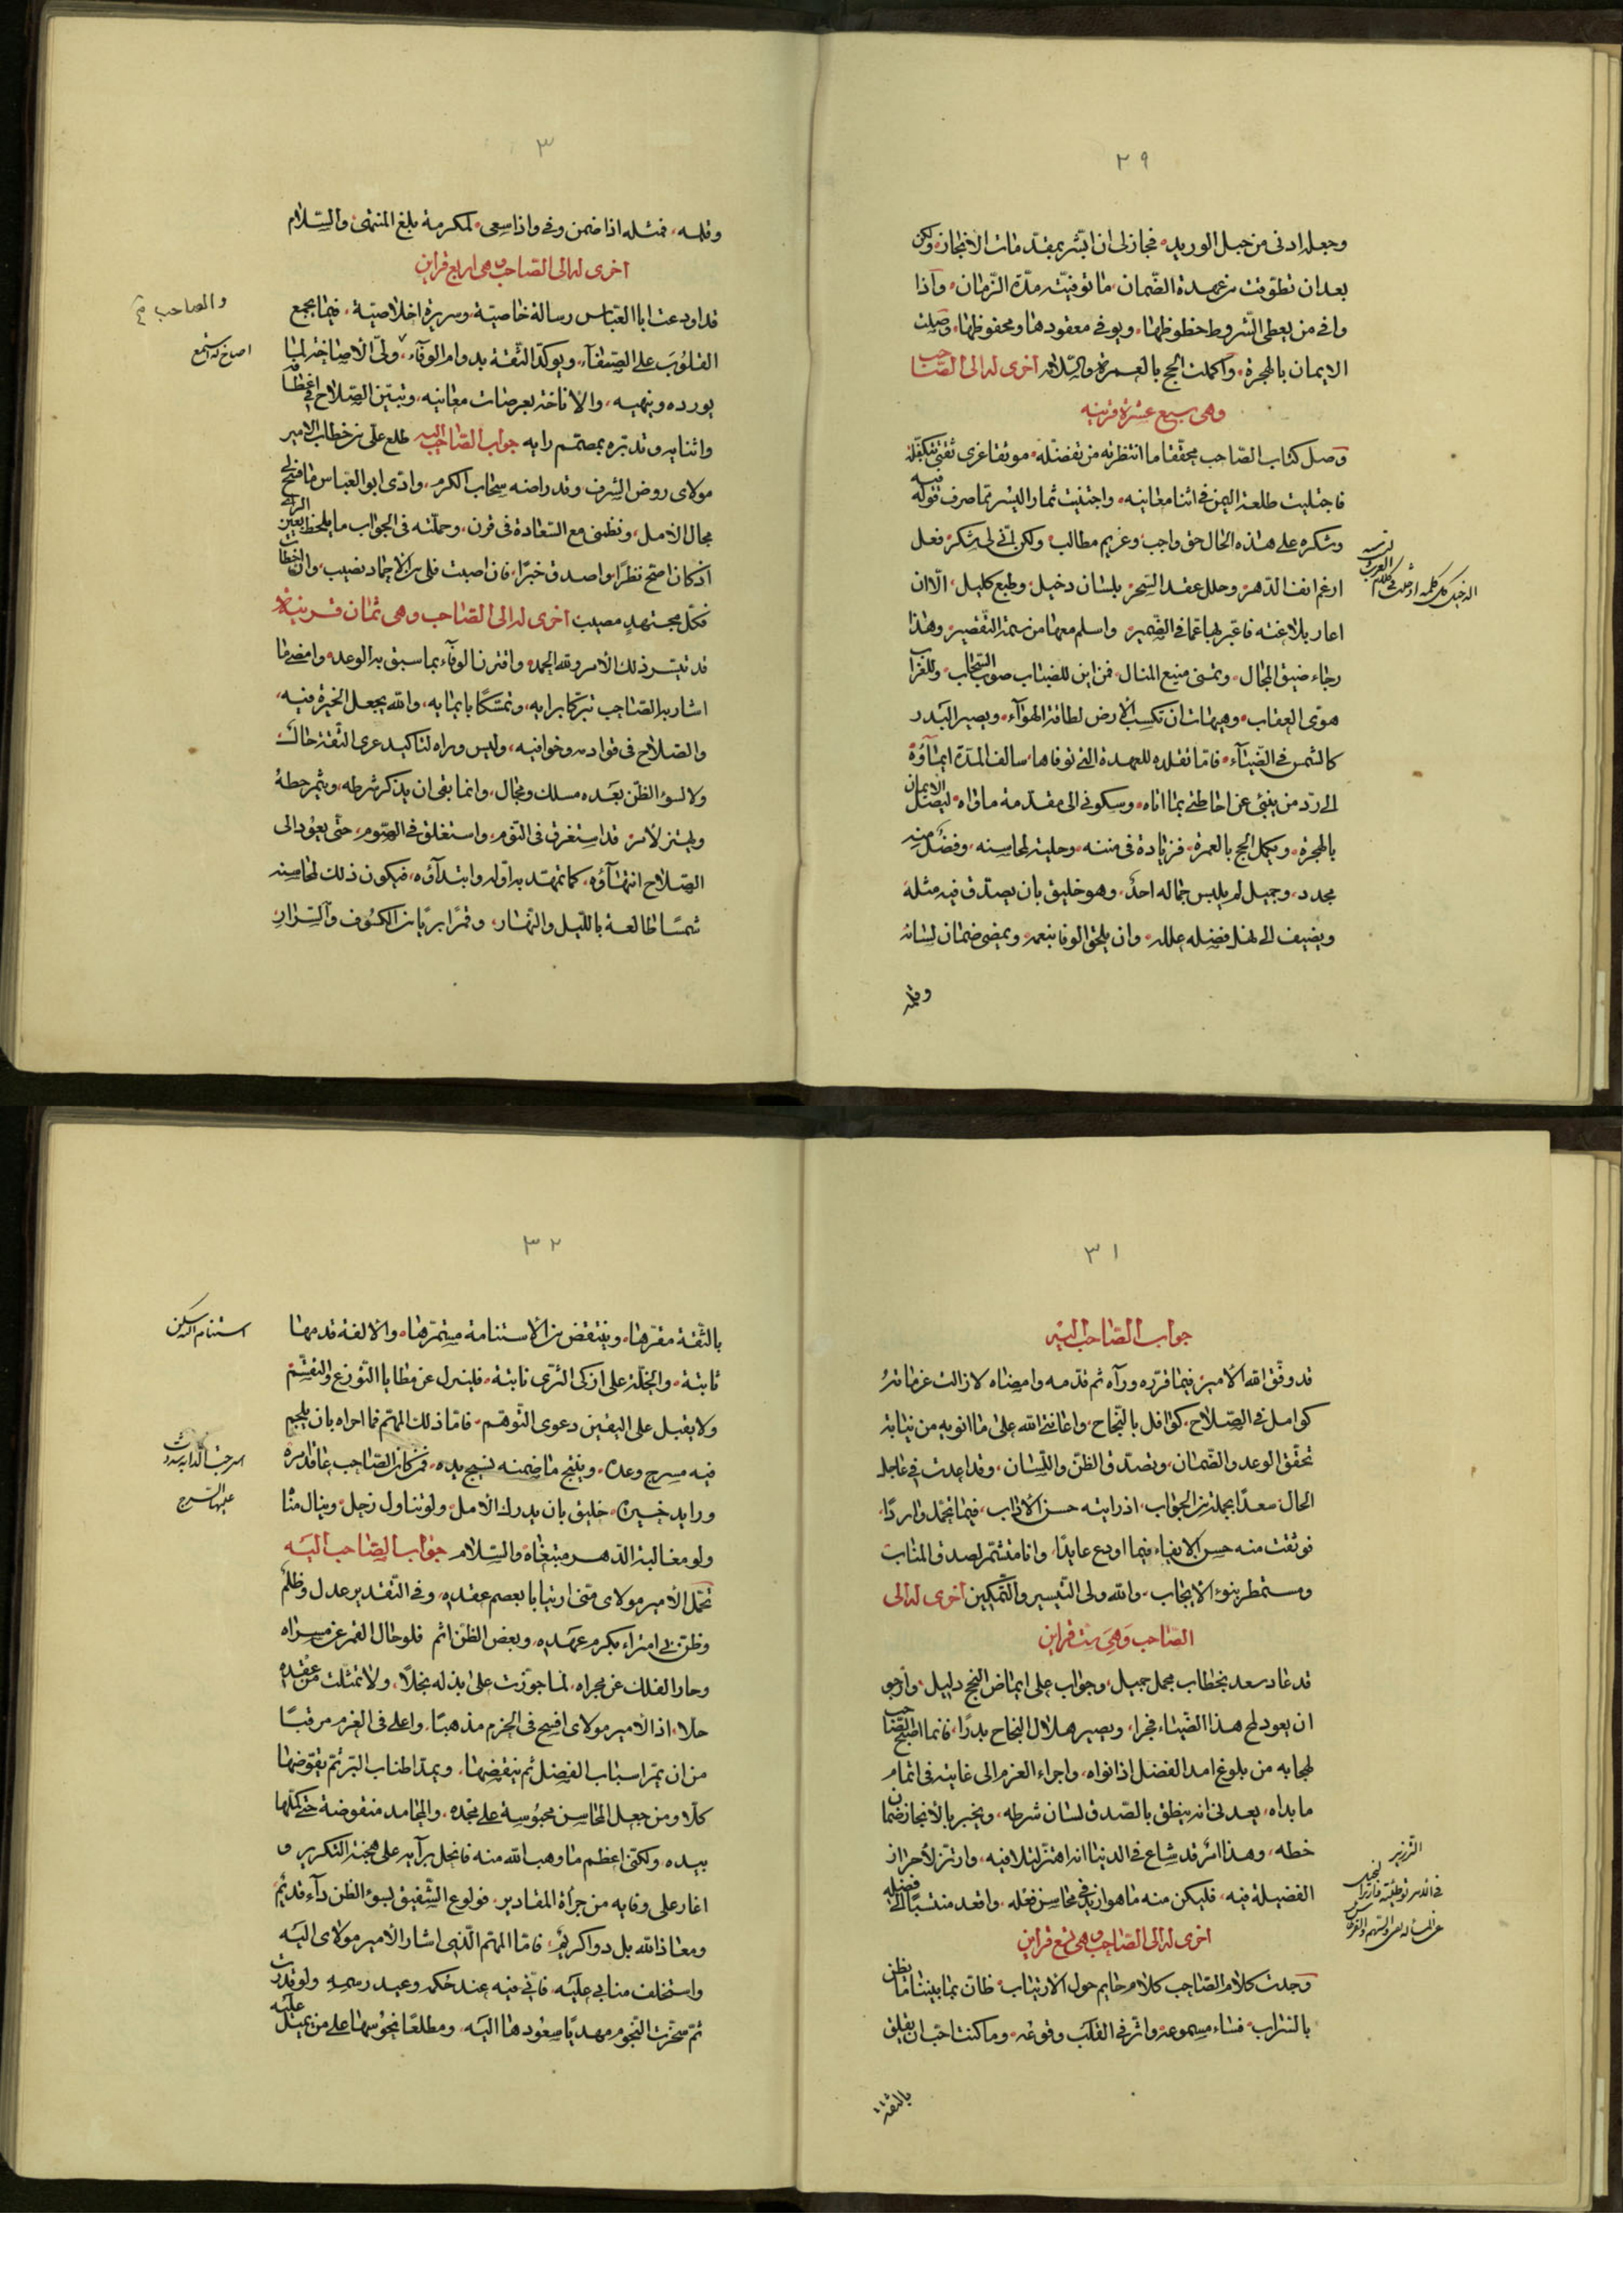 ٢٩
وجعله ادنى من حبل الوريد، فجاز لى ان ابشر بمقدمات الانجاز، ولكن
بعد ان تطوقت من عهدة الضمان، ما توفيته مدة الزمان، واذا
وافى من يعطى الشروط حظوظها، ويوفى معقودها ومحفوظها، وصلت
الايمان بالهجرة، واكملت الحج بالعمرة والسلام اخرى له الى الصاحب
وهى سبع عشرة قرينه
وصل كتاب الصاحب محققا ما انتظرته من تفضله، موثقا عرى ثقتى بتكفله
فاجتليت طلعة اليمن فى اثنا معانيه، واجتنيت ثمار اليسر مما صرف قوله فيه
وشكره على هذه الحال حق واجب، وغريم مطالب، ولكن انى لى شكر فعل
ارغم انف الدهر، وحلل عقد السحر، بلسان دخيل، وطبع كليل، الا ان
اعار بلاغته فاعبر بها عما فى الضمير، واسلم معها من سمة التقصير، وهذا
رجاء ضيق المجال، وتمنى منيع المنال، فمن اين للضباب صوب السحاب، وللغراب
هوى العقاب، وهيهات ان تكسب الارض لطافة الهوآء، ويصير البدر
كالشمس فى الضيآء، فاما تقلده للعهدة التى توفاها، سالف المدة ايماؤه
الى رد من ينبئ عن احاطتى بما اتاه، وسكونى الى مقدمة ما قراه، ليصل الايمان
بالهجرة، ويكمل الحج بالعمرة، فزيادة فى مننه، وحلية لمحاسنه، وفضل منه
مجدد، وجميل لم يلبس جماله احد، وهو خليق بان يصدق فيه مثله
ويضيف الى نهل فضله علله، وان يلحق الوفا بنعم، ويمضى ضمان لسانه
وقلمه
الدخيل كل كلمة ادخلت فى كلام العرب
٣
وقلمه، فمثله اذا ضمن وفى واذا سعى، لمكرمة بلغ المنتهى والسلام
اخرى له الى الصاحب وهى اربع قراين
قد اودعت ابا العباس رسالة خاصية، وسريرة اخلاصية، فيما يجمع
القلوب على الصفآء، ويوكد الثقة بدوام الوفآء، ولى الاصاخة لما
يورده وينهيه، والاناخة بعرصات معانيه، وتبين الصلاح فى اعطافه
واثنايه وتدبره بمصمم رايه جواب الصاحب اليه طلع على من خطاب الامير
مولاى روض الشرف وقد راضه سحاب الكرم، وادى ابو العباس ما فسح لى
مجال الامل، ونظمنى مع السعادة فى قرن، وحملته فى الجواب ما يلحظ بعين الراى
اذ كان اصح نظرا، واصدق خبرا، فان اصبت فلى من الاحماد نصيب، وان اخطات
فكل مجتهد مصيب اخرى له الى الصاحب وهى ثمان قرينه
قد تيسر ذلك الامر ولله الحمد، واقترن الوفآء بما سبق به الوعد، وامضى ما
اشار به الصاحب تبركا برايه، وتمسكا بايمايه، والله يجعل الخيرة فيه،
والصلاح فى قوادمه وخوافيه، وليس وراه لتاكيد عرى الثقة حال،
ولا لسوء الظن بعده مسلك ومجال، وانما بقى ان يذكر شرطه، ويثمر خطه
ويهتز لامر قد استغرق فى النوم، واستغلق فى الصوم، حتى يعود الى
الصلاح انتهآؤه، كما تمهد به اوله وابتدآؤه، فيكون ذلك لمحاسنه
شمسا طالعة بالليل والنهار، وقمرا بريا من الكسوف والسرار
والصاحب
اصاخ له استمع
٣١
جواب الصاحب اليه
قد وفق الله الامير فيما قرره ورآه ثم قدمه وامضاه لا زالت عزماته
كوامل فى الصلاح، كوافل بالنجاح، واعاننى الله على ما انويه من نيابة
تحقق الوعد والضمان، وتصدق الظن واللسان، وقد اعدت فى عاجل
الحال، معدا بجملة من الجواب، اذ رايته حسن الاداب، فيما تحمل واردا،
فوثقت منه حسن الايفاء فيما اودع عايدا، وانا متشمر لصدق المناب
ومستمطر بنوء الايجاب، والله ولى التيسير والتمكين اخرى له الى
الصاحب وهى ست قراين
قد عاد سعد بخطاب مجمل جميل، وجواب على ايماض النجح دليل، وارجو
ان يعود لمح هذا الضياء فجرا، ويصير هلال النجاح بدرا، فانما اطبع الصاحب
لهجا به من بلوغ امد الفضل اذا نواه، واجراء العزم الى غايته فى اتمام
ما بداه، يعدنى انه ينطق بالصدق لسان شرطه، ويخبر بالانجاز ضمان
خطه، وهذا امر قد شاع فى الدنيا انه اهتز لتلافيه، وارتز لاحراز
الفضيلة فيه، فليكن منه ما هو ازيد فى محاسن فعله، واقعد منتسبا الى فضله
اخرى له الى الصاحب وهى تسع قراين
وجدت كلام الصاحب كلام حايم حول الارتياب، ظان بما بيننا ما يظن
بالسراب، فساء مسموعه واثر فى القلب وقوعه، وما كنت احب ان يقلق
بالثقة
٣٢
بالثقة مقرها، وينتقض من الاستنامة مستمرها، والالفة قدمها
ثابتة، والخلة على ازكى الثرى نابتة، فلينزل عن مطايا التوزع والتقسم
ولا يقبل على اليقين دعوى التوهم، فاما ذلك المهم فما احراه بان يلجم
فيه مسرج وعده، وينتج ما ضمنه نسيج يده، فمن كان الصاحب عاقد امره
ورايد خيره، خليق بان يدرك الامل، ولو تناول زحل، وينال مناه
ولو مغالبة الدهر مبتغاه والسلام جواب الصاحب اليه
تحمل الامير مولاى منى ارتيابا بعصم عقده، وفى التقدير عدل وظلم
وظن بى امتراء بكرم عهده، وبعض الظن اثم فلو حال القمر عن مسراه
وحار الفلك عن مجراه، لما جوزت على بذله بخلا، ولا تمثلت من عقده
حلا، اذ الامير مولاى افسح فى الحزم مذهبا، واعلى فى العزم مرقبا
من ان يمر اسباب الفضل ثم ينقضها، ويمد اطناب البر ثم يقوضها
كلا ومن جعل المحاسن محبوسة على مجده، والمحامد منقوضة حتى كلها
بيده، ولكنى اعظم ما وهب الله منه فانحل برآيه على هجنة التكرير و
اغار على وفايه من جراة المقادير، فولوع الشفيق بسوء الظن دآء قديم
ومعاذ الله بل دوا كريم، فاما المهم الذى اشار الامير مولاى اليه
واستخلف منابى عليه، فانى فيه عند حكمه وعبد رسمه ولو قدرت
ثم سخرت النجوم مهديا سعودها اليه، ومطلعا نحوسها على من يميل عليه
استنام اليه سكن
اسرجت الدابة شددت
عليها السرج